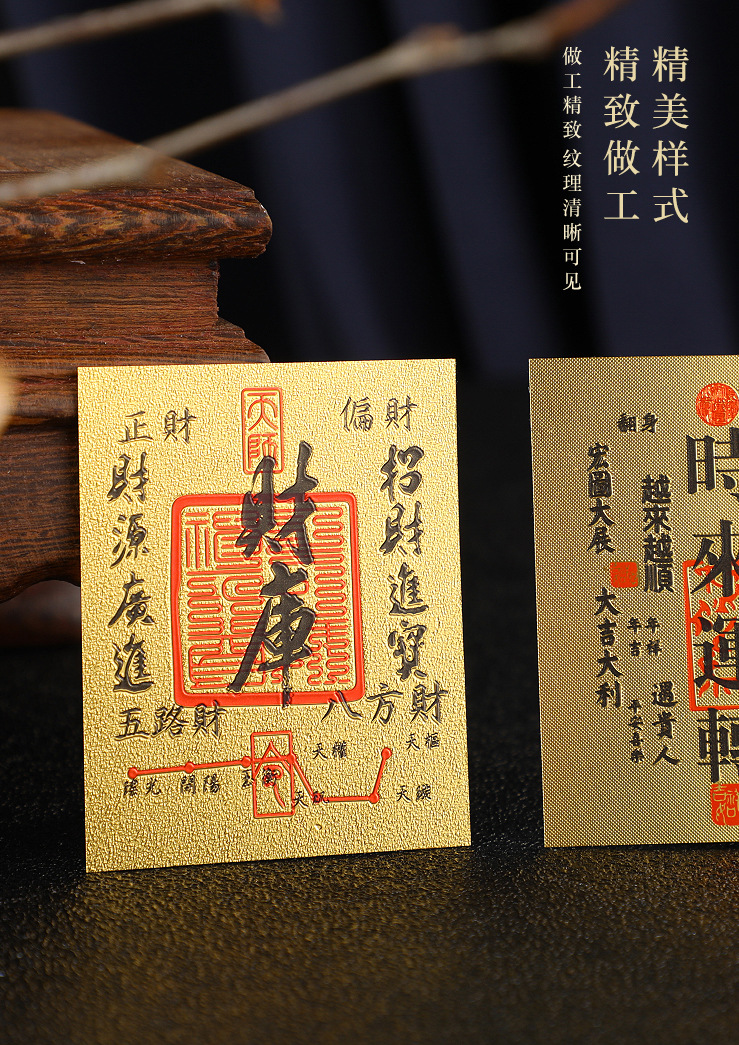 精美样式
精致做工
做工精致 纹理清晰可见
天師
正財
偏財
財庫
招財進寶
財源廣進
五路財
八方財
天權
天樞
開陽
天璇
翻身
時來運轉
越來越順
宏圖大展
年年
吉祥
平安喜樂
遇貴人
大吉大利